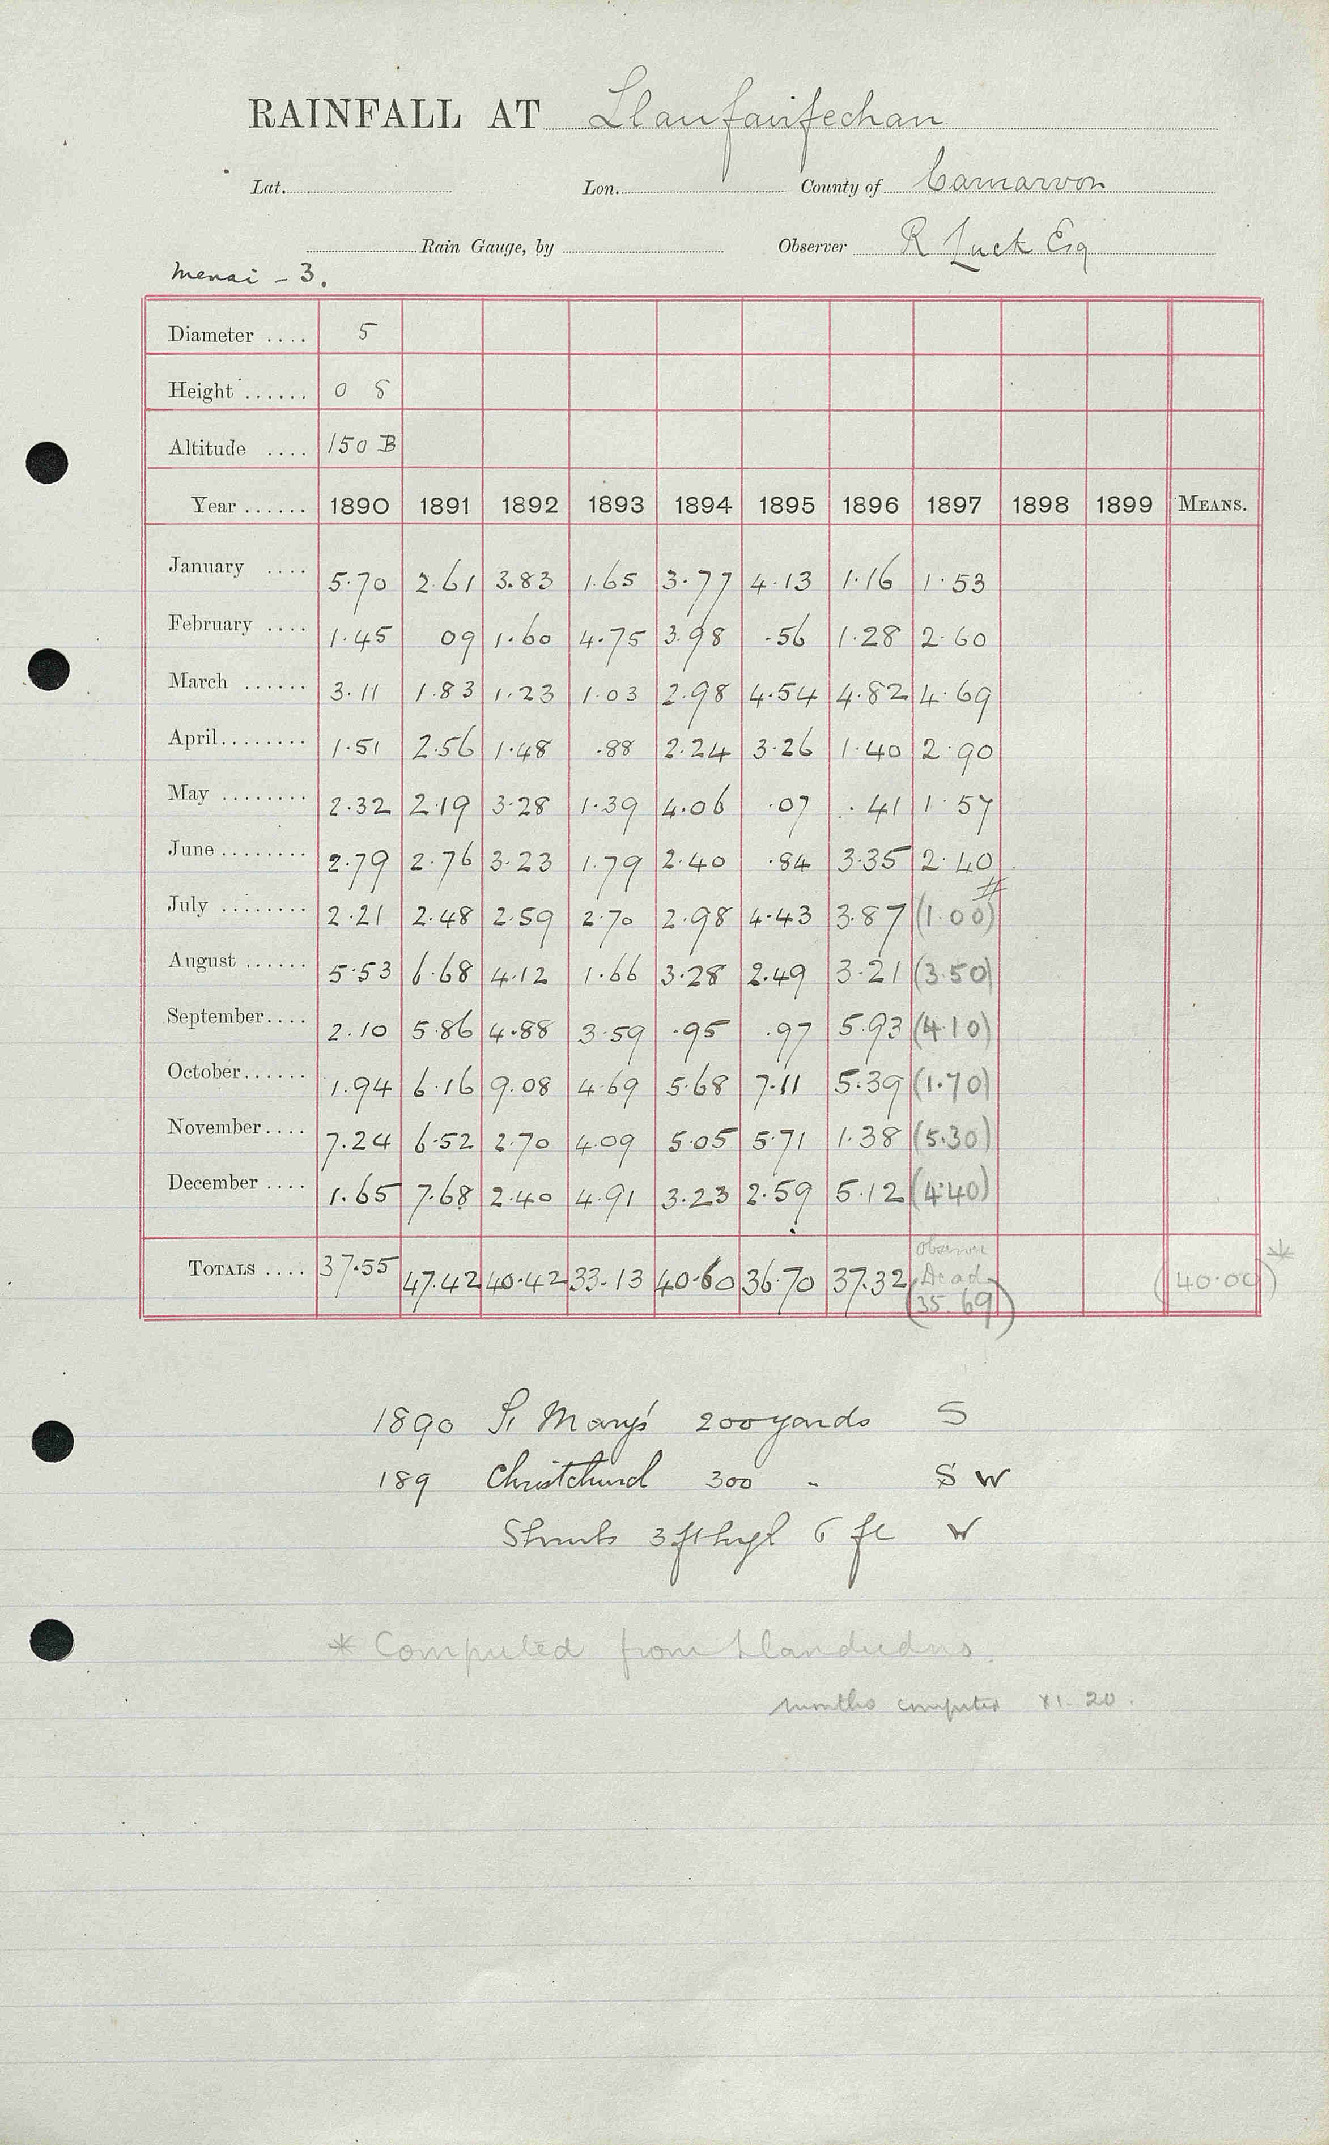 RAINFALL AT Llanfairfechan
Lat. Lon. County of Carnarvon
Rain Gauge, by Observer R Luck Esq
Menai - 3.
Diameter .... 5
Height ...... 0 8
Altitude .... 150 B
Year ...... 1890 1891 1892 1893 1894 1895 1896 1897 1898 1899 MEANS.
January .... 5.70 2.61 3.83 1.65 3.77 4.13 1.16 1.53
February .... 1.45 09 1.60 4.75 3.98 .56 1.28 2.60
March ...... 3.11 1.83 1.23 1.03 2.98 4.54 4.82 4.69
April........ 1.51 2.56 1.48 .88 2.24 3.26 1.40 2.90
May ........ 2.32 2.19 3.28 1.39 4.06 .07 .41 1.57
June ........ 2.79 2.76 3.23 1.79 2.40 .84 3.35 2.40
July ........ 2.21 2.48 2.59 2.70 2.98 4.43 3.87 (1.00) #
August ...... 5.53 6.68 4.12 1.66 3.28 2.49 3.21 (3.50)
September.... 2.10 5.86 4.88 3.59 .95 .97 5.93 (4.10)
October...... 1.94 6.16 9.08 4.69 5.68 7.11 5.39 (1.70)
November.... 7.24 6.52 2.70 4.09 5.05 5.71 1.38 (5.30)
December .... 1.65 7.68 2.40 4.91 3.23 2.59 5.12 (4.40)
TOTALS .... 37.55 47.42 40.42 33.13 40.60 36.70 37.32 Observer Dead (35.69) (40.00)*
1890 St Mary's 200 yards S
189 Christchurch 300 " S W
Shrubs 3 ft high 6 ft W
* Computed from Llandudno.
months computed x1.20.